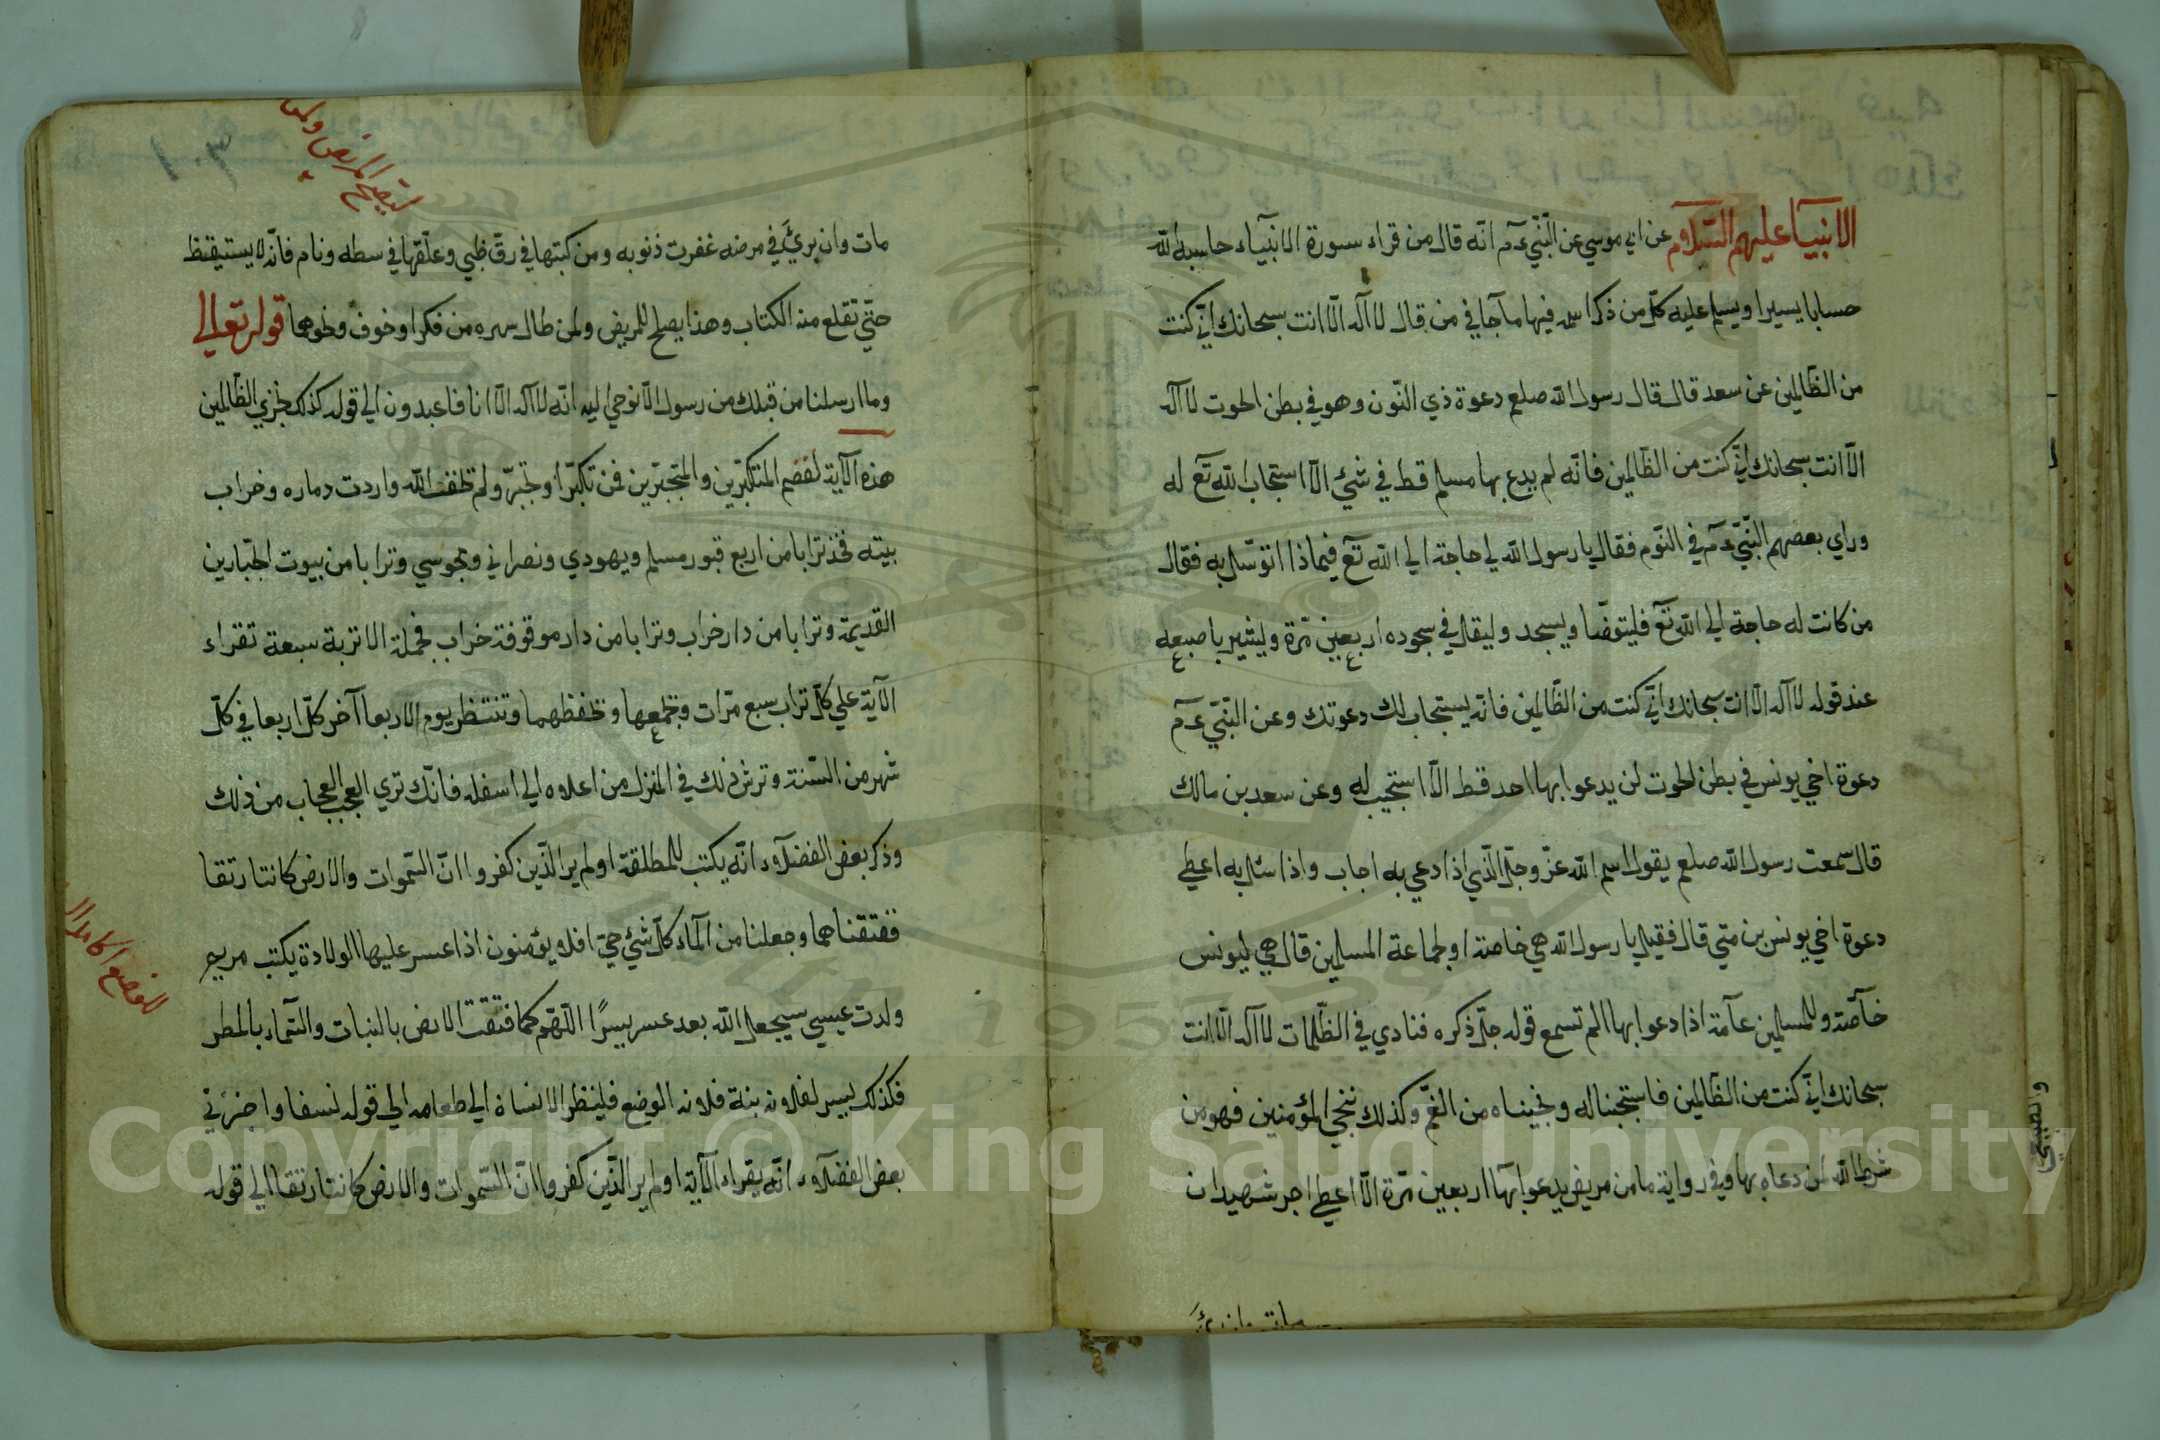 الانبياء عليهم السلام عن ابي موسي عن النبي عم انه قال من قراء سورة الانبياء حاسبه الله
حسابا يسيرا ويسلم عليه كل من ذكر اسمه فيها ما جافي من قال لا اله الا انت سبحانك اني كنت
من الظالمين عن سعد قال قال رسول الله صلعم دعوة ذي النون وهو في بطن الحوت لا اله
الا انت سبحانك اني كنت من الظالمين فانه لم يدع بها مسلم قط في شئ الا استجاب الله تع له
وراي بعضهم النبي عم في النوم فقال يا رسول الله لي حاجة الي الله تع فبماذا اتوسل به فقال
من كانت له حاجة الي الله تع فليتوضا ويسجد وليقل في سجوده اربعين مرة وليشير باصبعه
عند قوله لا اله الا انت سبحانك اني كنت من الظالمين فانه يستجاب لك دعوتك وعن النبي عم
دعوة اخي يونس في بطن الحوت لن يدعوا بها احد قط الا استجيب له وعن سعد بن مالك
قال سمعت رسول الله صلعم يقول اسم الله عز وجل الذي اذا دعي به اجاب واذا سئل به اعطي
دعوة اخي يونس بن متي قال فقيل يا رسول الله هي خاصة او لجماعة المسلمين قال هي ليونس
خاصة وللمسلمين عامة اذا دعوا بها الم تسمع قوله جل ذكره فنادي في الظلمات لا اله الا انت
سبحانك اني كنت من الظالمين فاستجبنا له ونجيناه من الغم وكذلك ننجي المؤمنين فهو من
شرط الله لمن دعاه بها وفي رواية ما من مريض يدعوا بها اربعين مرة الا اعطي اجر شهيد ان
مات وان برئ
مات وان برئ في مرضه غفرت ذنوبه ومن كتبها في رق ظبي وعلقها في سطه ونام فانه لا يستيقظ
حتي تقلع منه الكتاب وهذا يصلح للمريض ولمن طال سهره من فكر او خوف ونحوهما قوله تعالي
وما ارسلنا من قبلك من رسول الا نوحي اليه انه لا اله الا انا فاعبدون الي قوله كذلك نجزي الظالمين
هذه الآية لقصم المتكبرين والمتجبرين فمن تكبر او تجبر ولم تخف الله واردت دماره وخراب
بيته فخذ ترابا من اربع قبور مسلم ويهودي ونصراني ومجوسي وترابا من بيوت الجبارين
القديمة وترابا من دار خراب وترابا من دار موقوفة خراب فجملة الاتربة سبعة تقراء
الآية علي كل تراب سبع مرات وتجمعها وتحفظهما وتنتظر يوم الاربعا آخر كل اربعا في كل
شهر من السنة وترش ذلك في المنزل من اعلاه الي اسفله فانك تري العجب العجاب من ذلك
وذكر بعض الفضلاء انه يكتب للمطلقة اولم ير الذين كفروا ان السموات والارض كانتا رتقا
ففتقناهما وجعلنا من الماء كل شئ حي افلا يؤمنون اذا عسر عليها الولادة يكتب مريم
ولدت عيسي سيجعل الله بعد عسر يسرًا اللهم كما فتقت الارض بالنبات والسماء بالمطر
فكذلك يسر لفلانه بنة فلانه الوضع فلينظر الانسان الي طعامه الي قوله نسفا واخبرني
بعض الفضلاء انه يقراء الآية اولم ير الذين كفروا ان السموات والارض كانتا رتقا الي قوله
Copyright © King Saud University